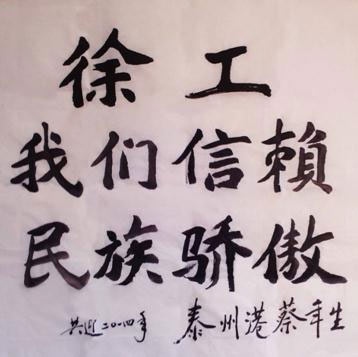 徐工
我们信賴
民族骄傲
共迎二〇一四年 泰州港蔡年生